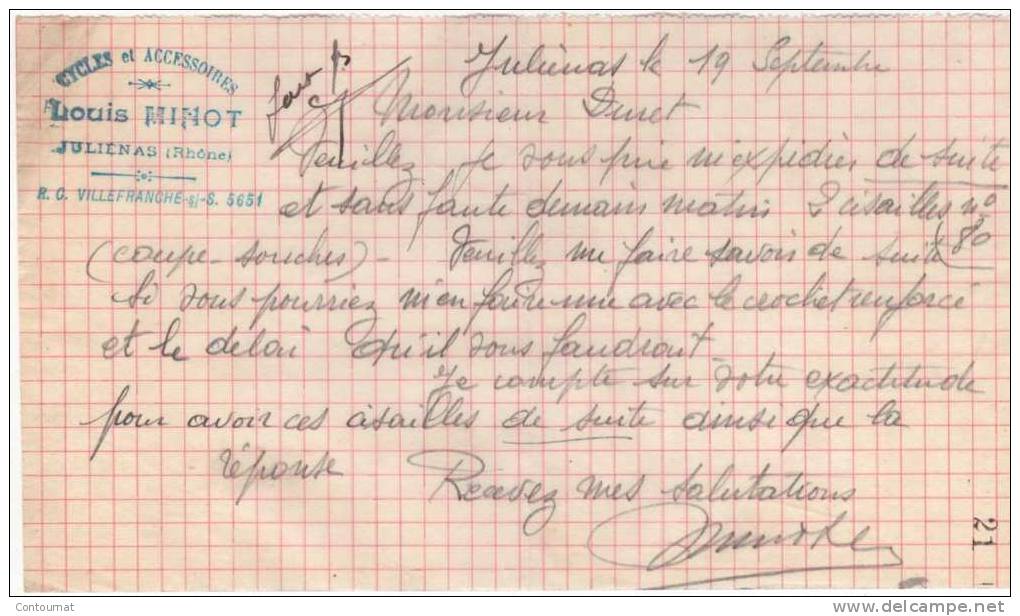 CYCLES et ACCESSOIRES
Louis MINOT
JULIÉNAS (Rhône)
R. C. VILLEFRANCHE-s/-S. 5651
Juliénas le 19 Septembre
Monsieur Duret
Veuillez je vous prie m'expédier de suite
et sans faute demain matin 2 cisailles no
80
(coupe-souches) - Veuillez me faire savoir de suite
Si vous pourriez m'en faire une avec le crochet renforcé
et le délai qu'il vous faudrait
Je compte sur votre exactitude
pour avoir ces cisailles de suite ainsi que la
réponse
Recevez mes salutations
21
Contournat
www.delcampe.net